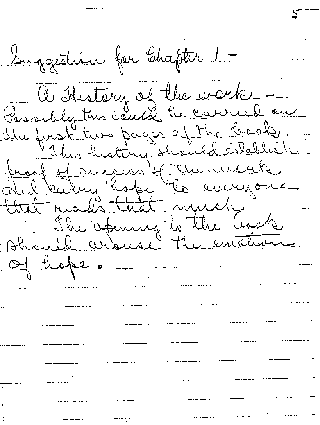 5
Suggestion for Chapter 1 -
A History of the work -
Possibly this could be carried on
the first two pages of the book.
This history should establish
proof of success of the work
and bring hope to everyone
that reads that much
The opening to the book
should arouse the emotion
of hope. -